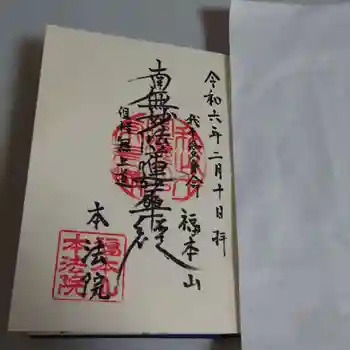 令和六年二月十日拝
我不愛身命
福本山
南無妙法蓮華経
但惜無上道
本法院
福本山
本法院